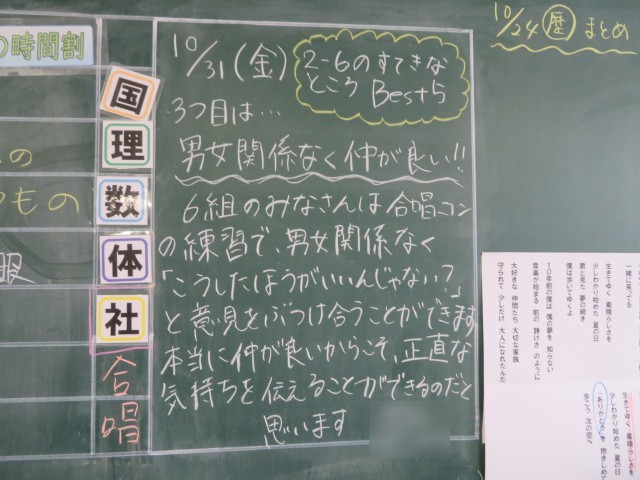 の時間割
の
つもの
服
国
理
数
体
社
合唱
10/31(金)
2-6のすてきな
ところ Best5
3つ目は…
男女関係なく仲が良い!!
6組のみなさんは合唱コン
の練習で、男女関係なく
「こうしたほうがいいんじゃない?」
と意見をぶつけ合うことができます
本当に仲が良いからこそ、正直な
気持ちを伝えることができるのだと
思います
10/24 歴 まとめ
一緒に笑ってる
生きてゆく 素晴らしさを
少しわかり始めた 夏の日
君と見た 夢の続き
僕は歩いてゆくよ
10年前の僕は 僕の夢を 知らない
音楽が始まる 前の 静けさ のように
大好きな 仲間たち 大切な家族
守られて 少しだけ 大人になれたんだ
生きてゆく 素晴らしさを
少しわかり始めた 夏の日
「ありがとう」を 抱きしめて
生こう 次の空へ